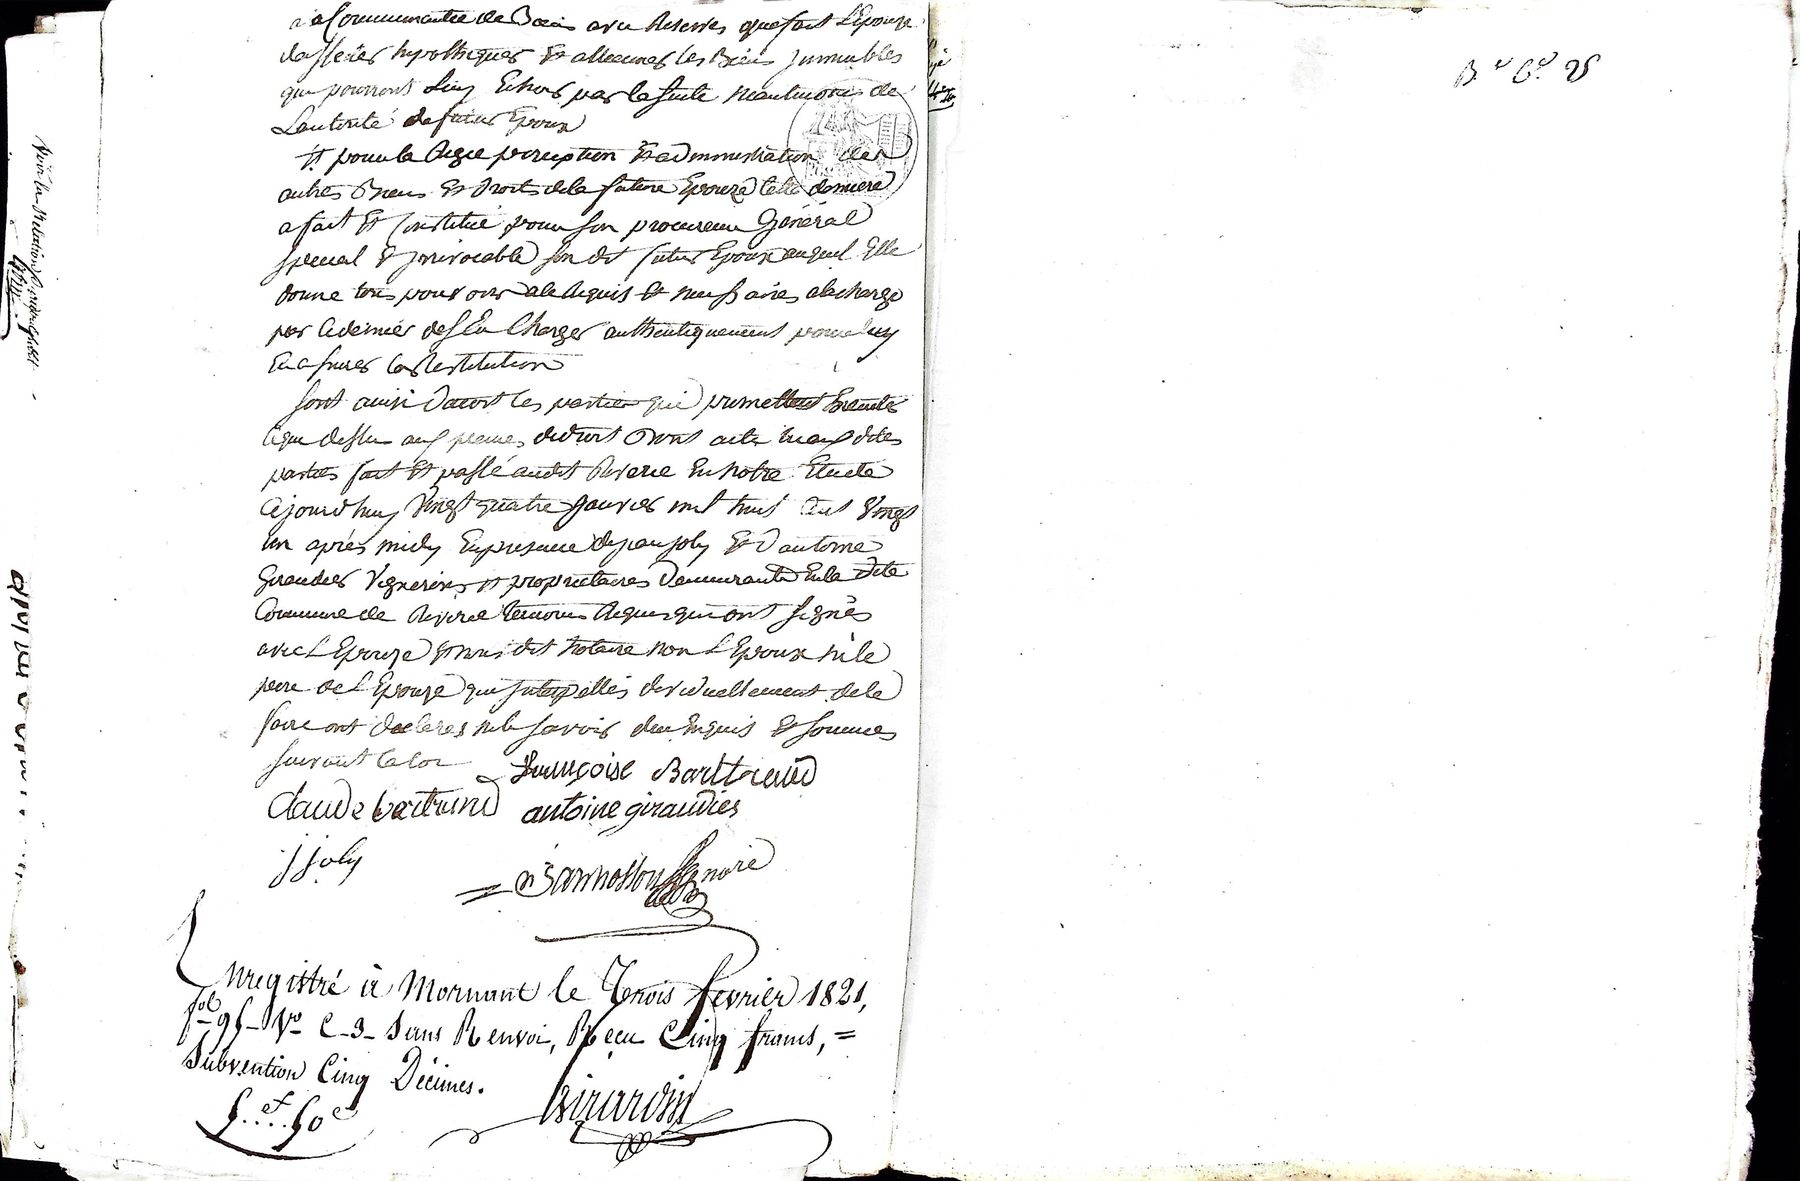 a la Communauté de Biens avec Reserves que fait L'Epouze
hypothequer et alliener les Biens Jmmeubles
qui pourront Luy Echoir par la suite de
Lautorité de futur Epoux
Et pour la Regie perception Et administration des
autres Biens Et Droits de la future Epouze Cette derniere
a fait Et Constitué pour son procureur Général
special et jrrévocable son dit futur Epoux auquel Elle
donne tous pouvoirs a ce Requis Et necessaires a la charge
par Ce dernier de s'En Charger authentiquement pour luy
En assurer la Restitution
sont ainsi Daccort les parties qui promettent Executer
Ce que dessus aux peines de droit Dont acte aux dites
parties fait Et passé audit Riverie En Notre Etude
Cejourd'huy Vingt quatre Janvier mil huit Cent Vingt
un après midy En presence de jean joly Et D'antoine
Giraudier Vignerons et propriétaires Demeurants En la dite
Commune de Riverie temoins Requis qui ont signés
avec L'Epouze Et nous dit Notaire non L'Epoux ni le
pere de L'Epouze qui Jnterpellés de le
faire ont declarés ne le savoir de ce Enquis Et sommés
suivant la loi
françoise Barttrand
claude bertrand antoine giraudier
j joly
Enregistré à Mornant le Trois fevrier 1821,
fol 95 Vo C 3 Sans Renvoi, Reçu Cinq francs, =
Subvention Cinq Décimes.
5 f. 50 c
Girardin